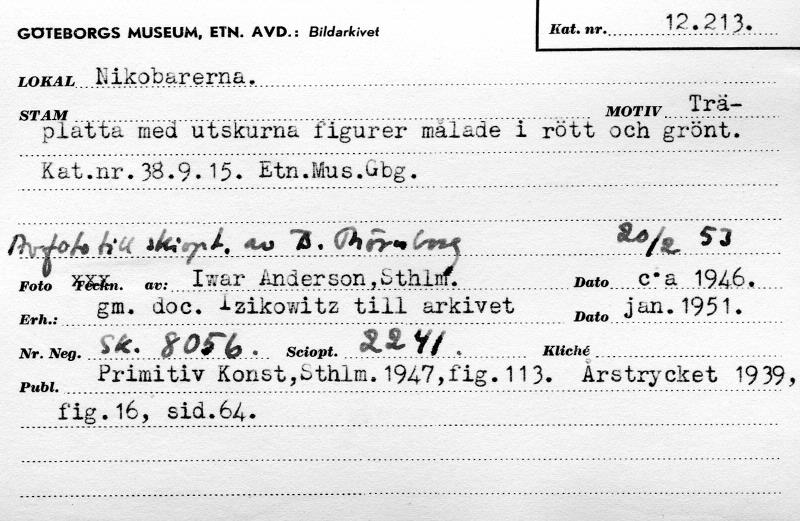 GÖTEBORGS MUSEUM, ETN. AVD.: Bildarkivet
Kat. nr. 12.213.
LOKAL Nikobarerna.
STAM MOTIV Trä-
platta med utskurna figurer målade i rött och grönt.
Kat.nr.38.9.15. Etn.Mus.Gbg.
Avfoto till skiopt. av B. Thörnborg 20/2 53
Foto Teckn. av: Iwar Anderson,Sthlm. Dato c:a 1946.
Erh.: gm. doc. Izikowitz till arkivet Dato jan.1951.
Nr. Neg. Sk. 8056. Sciopt. 2241. Kliché
Publ. Primitiv Konst,Sthlm.1947,fig.113. Årstrycket 1939,
fig.16, sid.64.